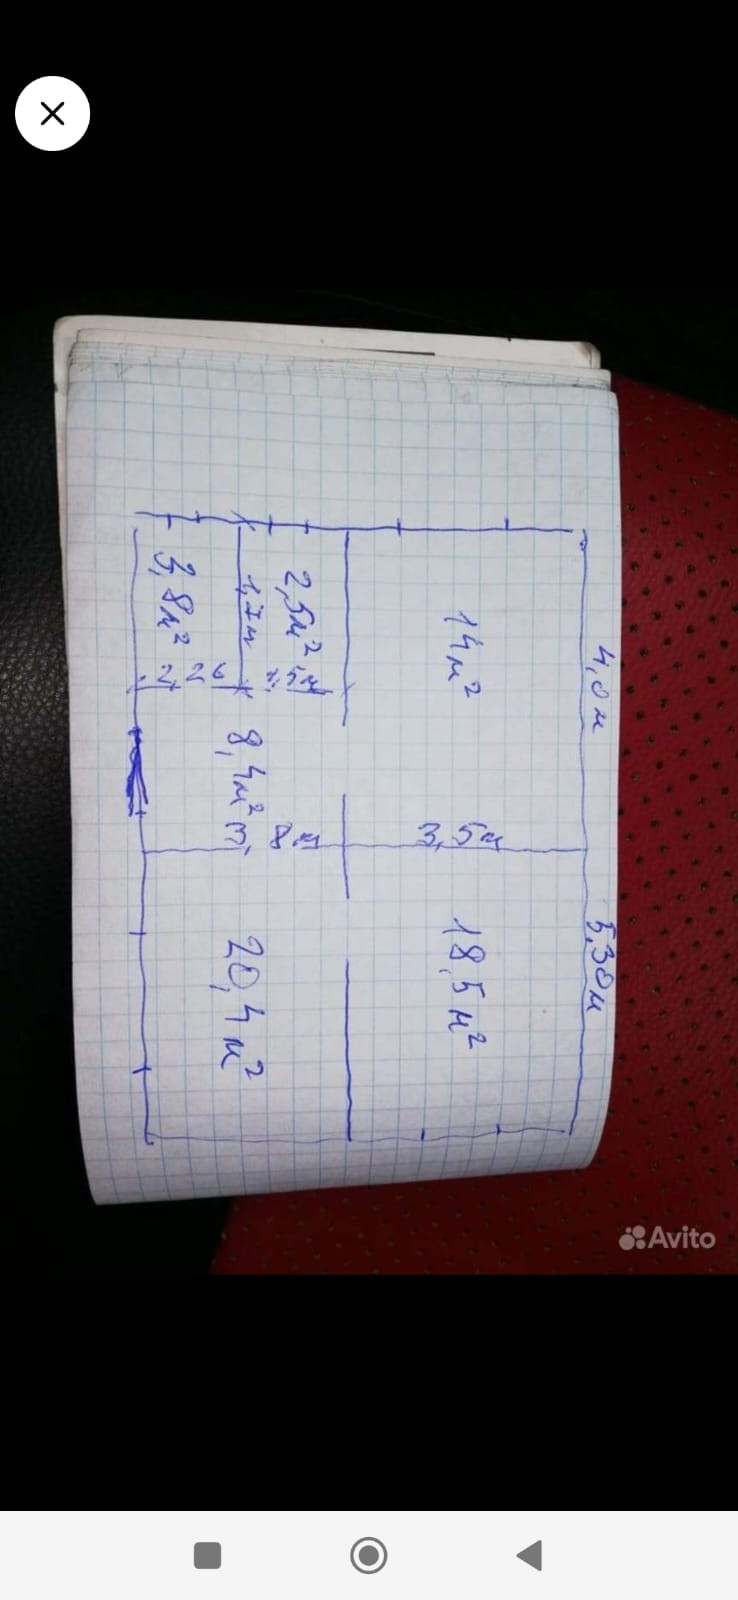 4,0м
14м²
2,5м²
1,7м
3,8м²
2,26
1,5м
8,4м²
3,8м
3,5м
5,30м
18,5м²
20,4м²
Avito